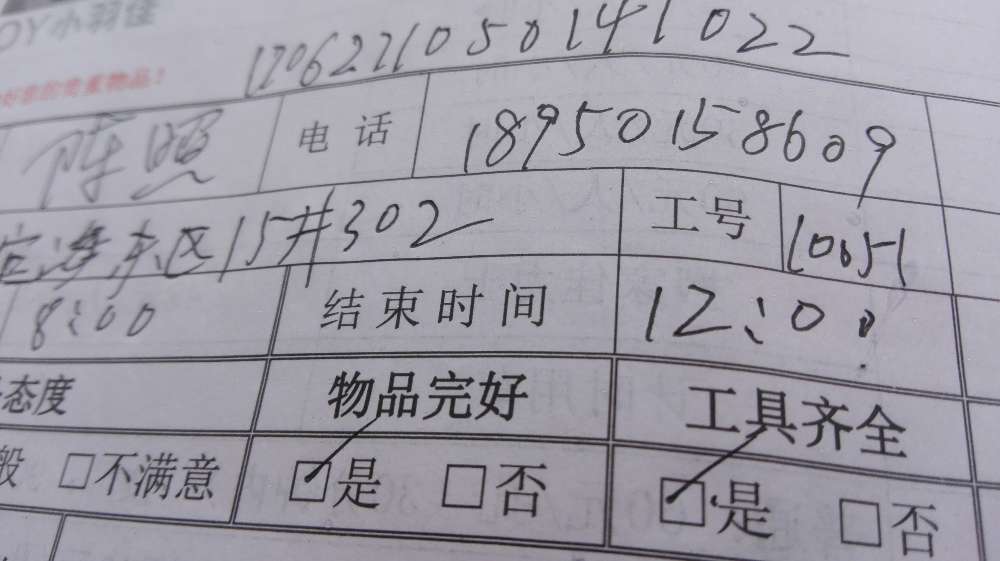 OY小羽佳
1206221050141022
好您的贵重物品！
陈照 电话 18950158609
海东区15#302 工号 10051
8:00 结束时间 12:00
态度 物品完好 工具齐全
般 □不满意 ☑是 □否 ☑是 □否